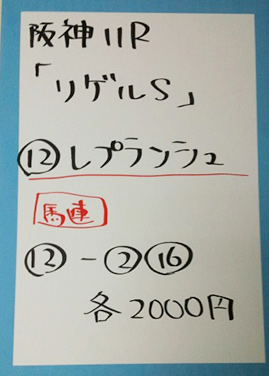 阪神11R
「リゲルS」
⑫レプランシュ
馬連
⑫-②⑯
各2000円